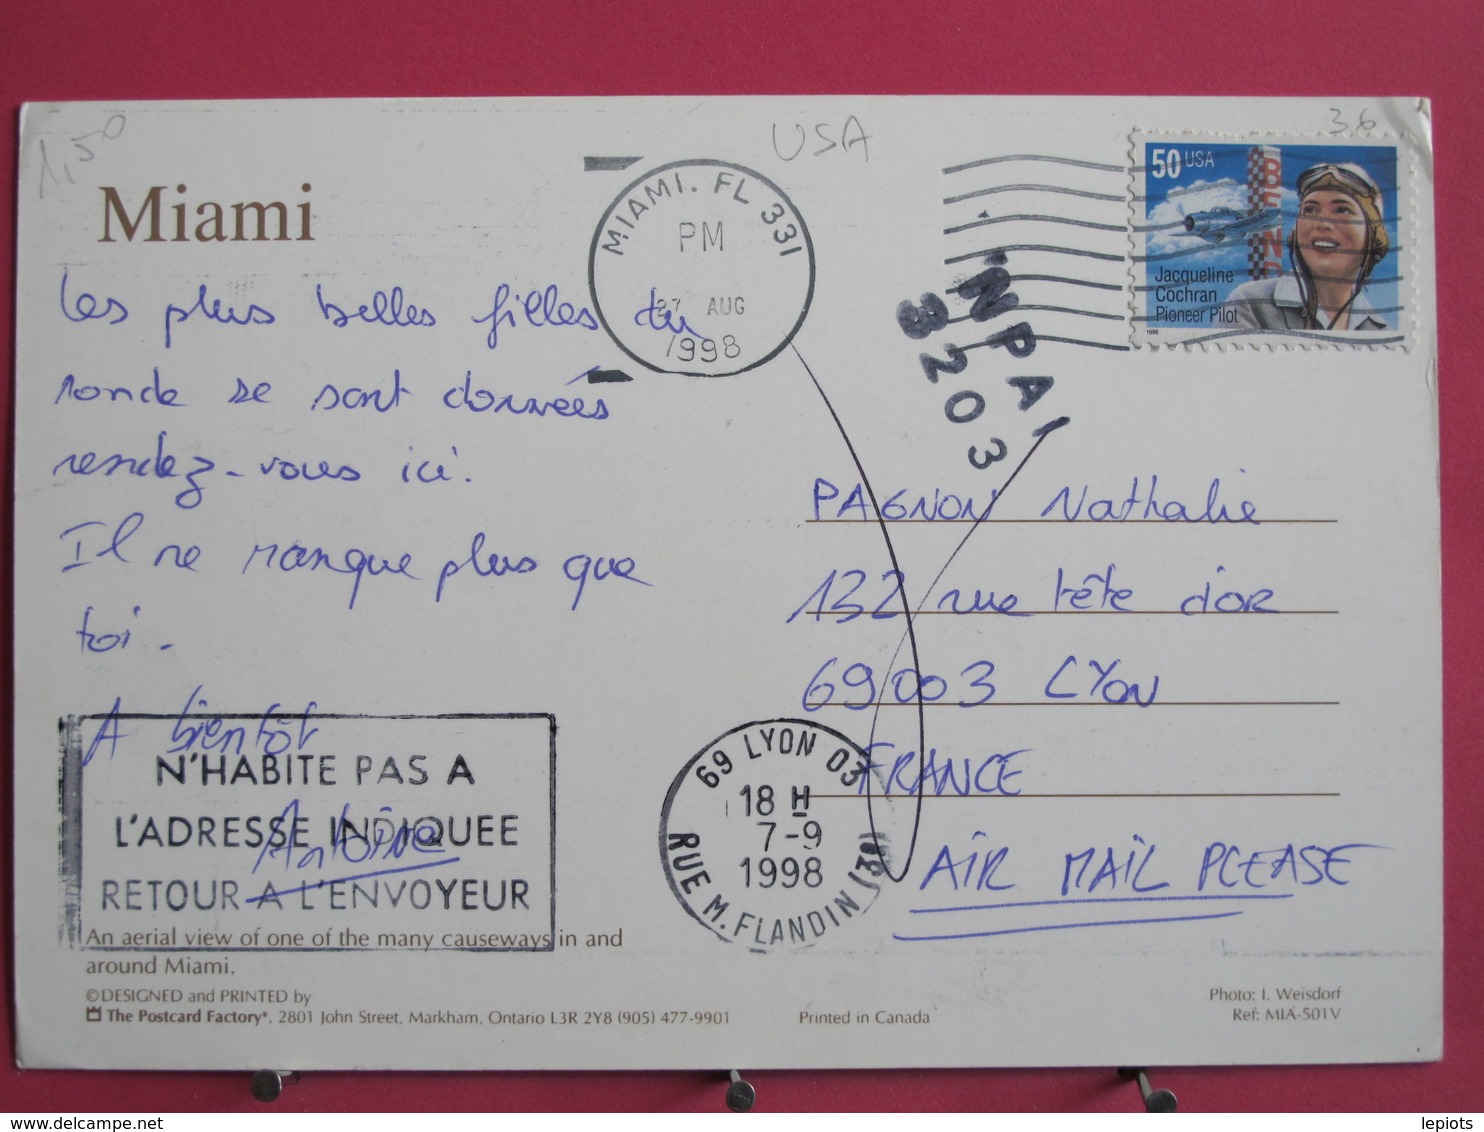 1,50
USA
3.6
Miami
MIAMI. FL 331
PM
27 AUG
1998
50 USA
BEND
Jacqueline
Cochran
Pioneer Pilot
1996
NPAI
3203
Les plus belles filles du
monde se sont données
rendez-vous ici.
Il ne manque plus que
toi.
A bientôt
Antoine
PAGNON Nathalie
132 rue tête d'or
69003 LYON
FRANCE
AIR MAIL PLEASE
N'HABITE PAS A
L'ADRESSE INDIQUEE
RETOUR A L'ENVOYEUR
69 LYON 03
18 H
7-9
1998
RUE M. FLANDIN (3E)
An aerial view of one of the many causeways in and
around Miami.
© DESIGNED and PRINTED by
The Postcard Factory®, 2801 John Street, Markham, Ontario L3R 2Y8 (905) 477-9901
Printed in Canada
Photo: I. Weisdorf
Ref: MIA-501V
lepiots